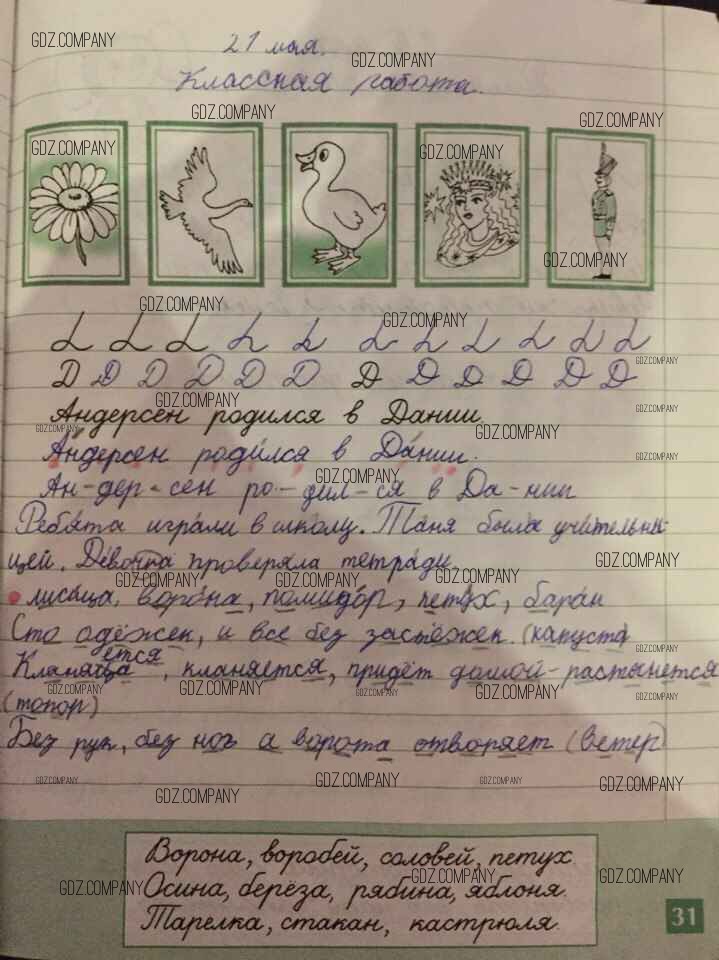 21 мая.
Классная работа.
L L L L L L L L L L L
Д Д Д Д Д Д Д Д Д Д Д Д
Андерсен родился в Дании.
Андерсен родился в Дании.
Ан-дер-сен ро-дил-ся в Да-нии
Ребята играли в школу. Таня была учительни-
цей. Девочка проверяла тетради.
лисица, ворона, помидор, петух, баран
Сто одёжек, и все без застёжек. (капуста)
ется
Кланяеца, кланяется, придёт домой - растянется
(топор)
Без рук, без ног а ворота отворяет (ветер)
Ворона, воробей, соловей, петух.
Осина, берёза, рябина, яблоня.
Тарелка, стакан, кастрюля.
31
GDZ.COMPANY